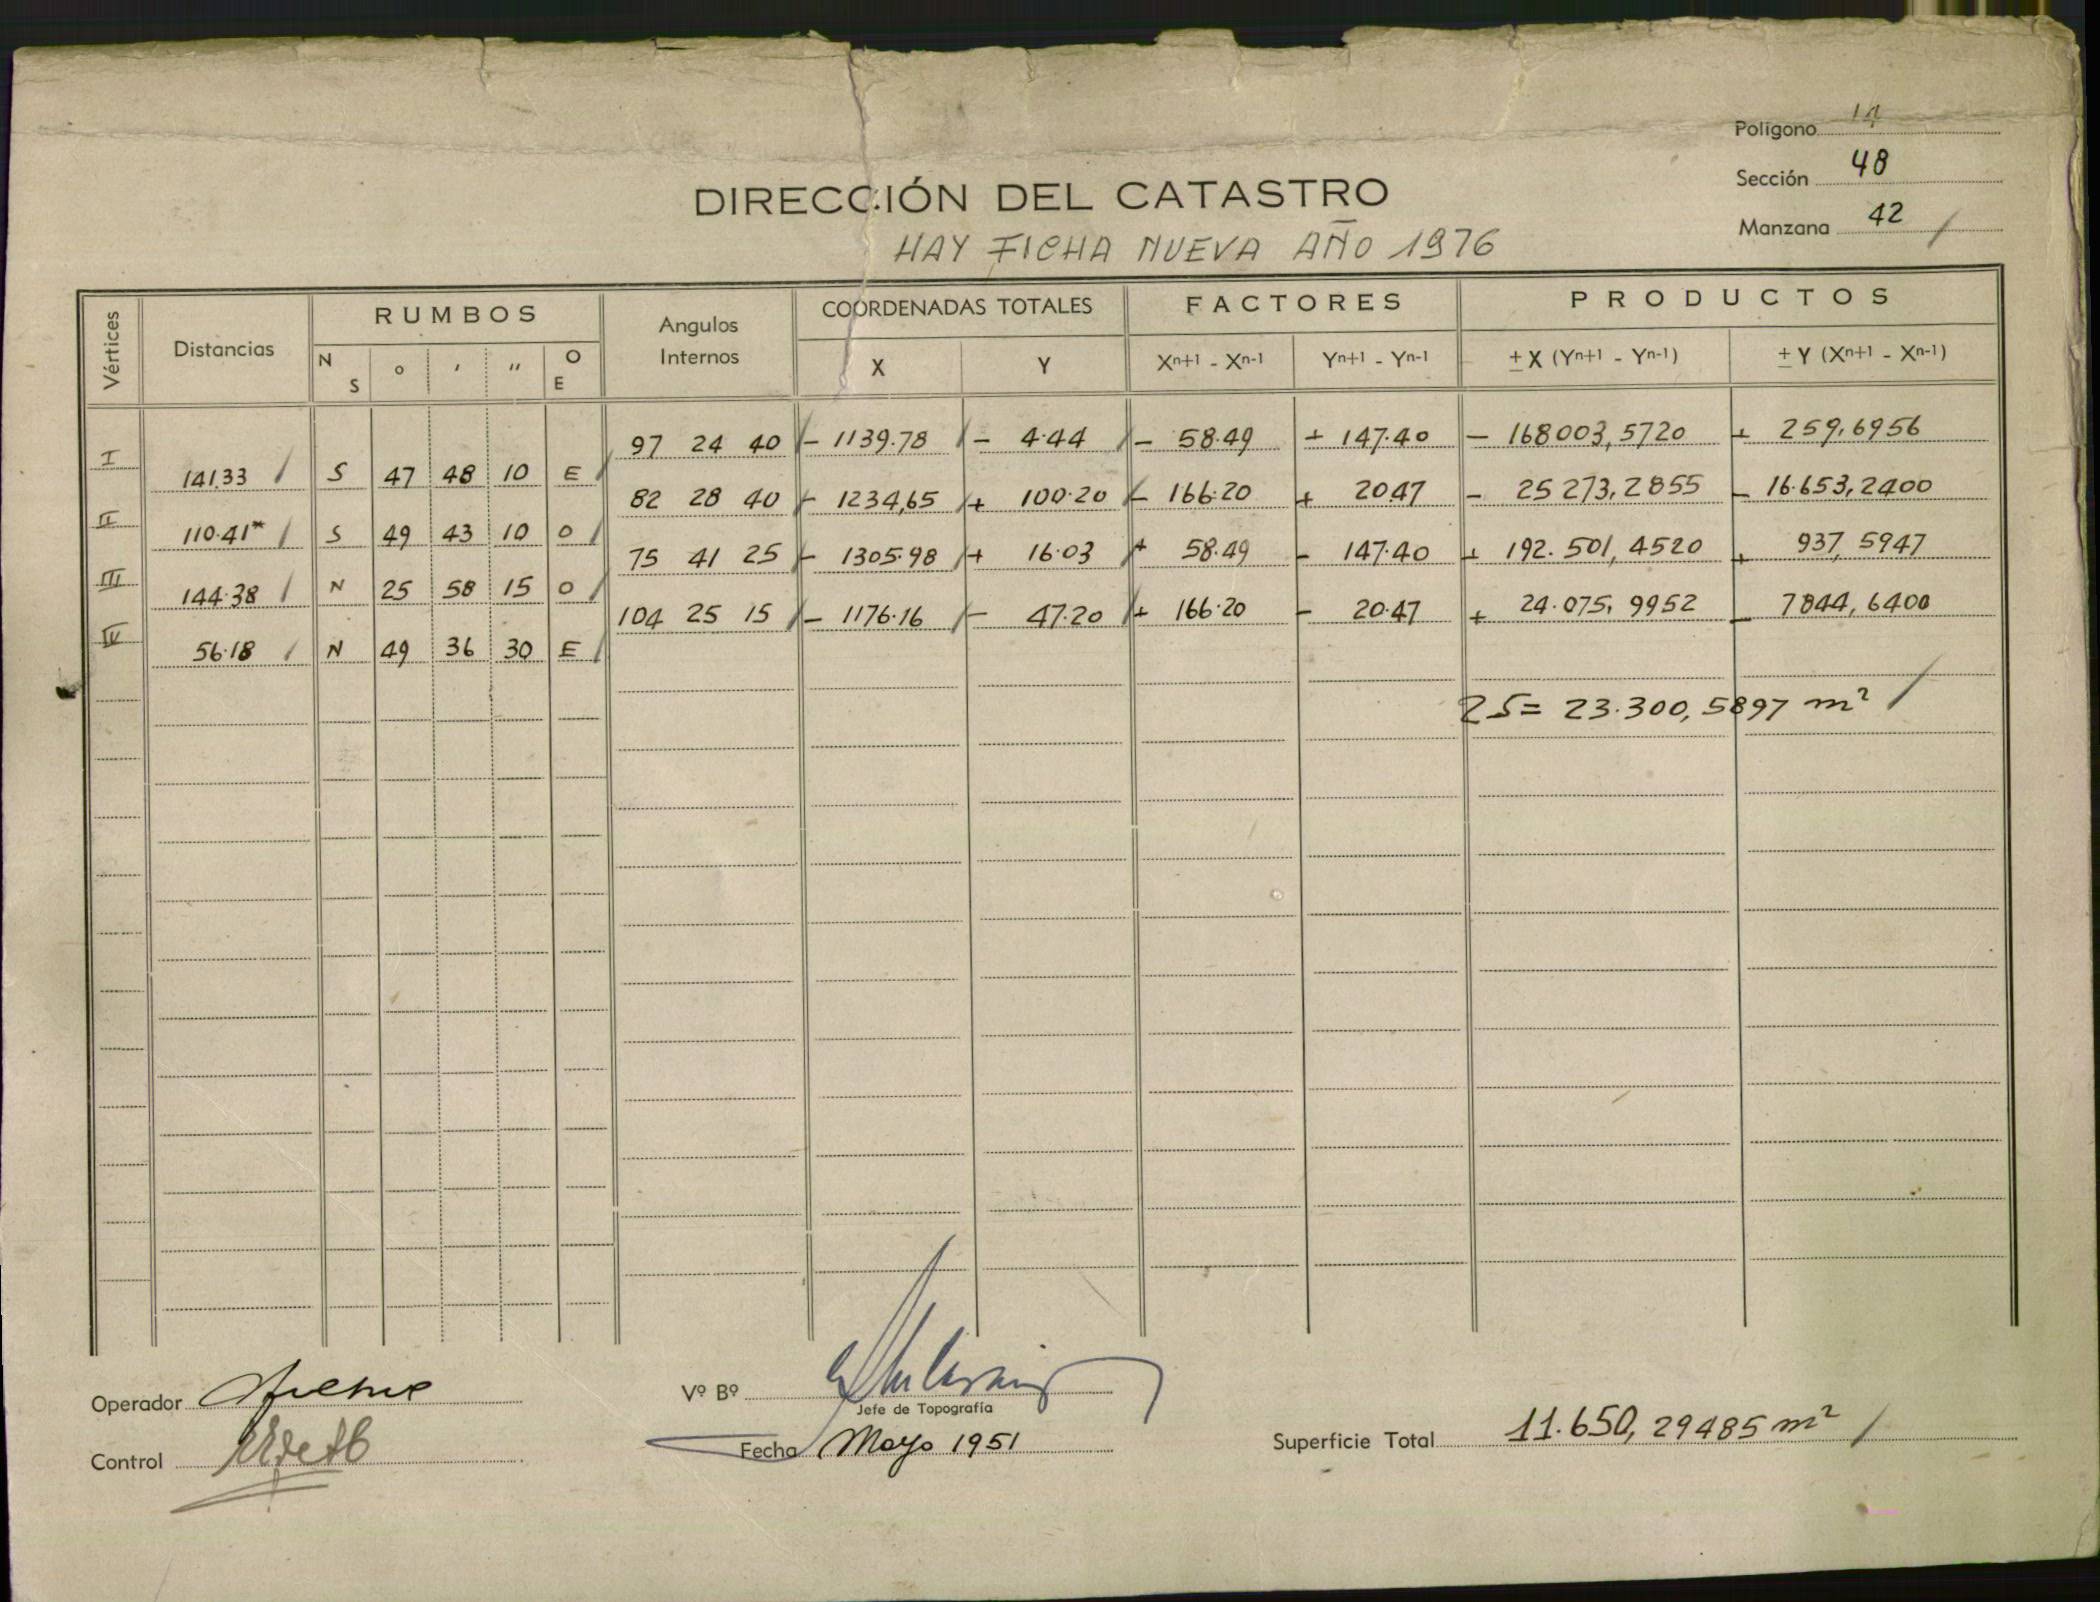 Polígono 14
Sección 48
DIRECCIÓN DEL CATASTRO
Manzana 42 /
HAY FICHA NUEVA AÑO 1976
Vértices Distancias RUMBOS Angulos Internos COORDENADAS TOTALES FACTORES PRODUCTOS
N S o ' " O E X Y Xn+1 - Xn-1 Yn+1 - Yn-1 ±X (Yn+1 - Yn-1) ±Y (Xn+1 - Xn-1)
97 24 40 - 1139.78 / - 4.44 / - 58.49 + 147.40 - 168003,5720 + 259,6956
I 141.33 / S 47 48 10 E /
82 28 40 / - 1234,65 / + 100.20 / - 166.20 + 20.47 - 25273,2855 - 16.653,2400
II 110.41* / S 49 43 10 O /
75 41 25 / - 1305.98 / + 16.03 / + 58.49 - 147.40 + 192.501,4520 + 937,5947
III 144.38 / N 25 58 15 O /
104 25 15 / - 1176.16 / - 47.20 / + 166.20 - 20.47 + 24.075,9952 - 7844,6400
IV 56.18 / N 49 36 30 E /
2S = 23.300,5897 m² /
Operador
Vº Bº
Jefe de Topografía
Control
Fecha Mayo 1951
Superficie Total 11.650,29485 m² /